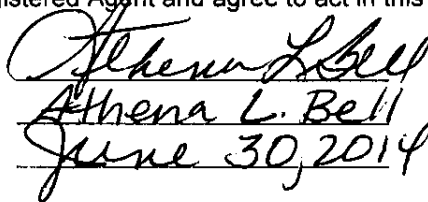 gistered Agent and agree to act in this
Athena L. Bell
Athena L. Bell
June 30, 2014